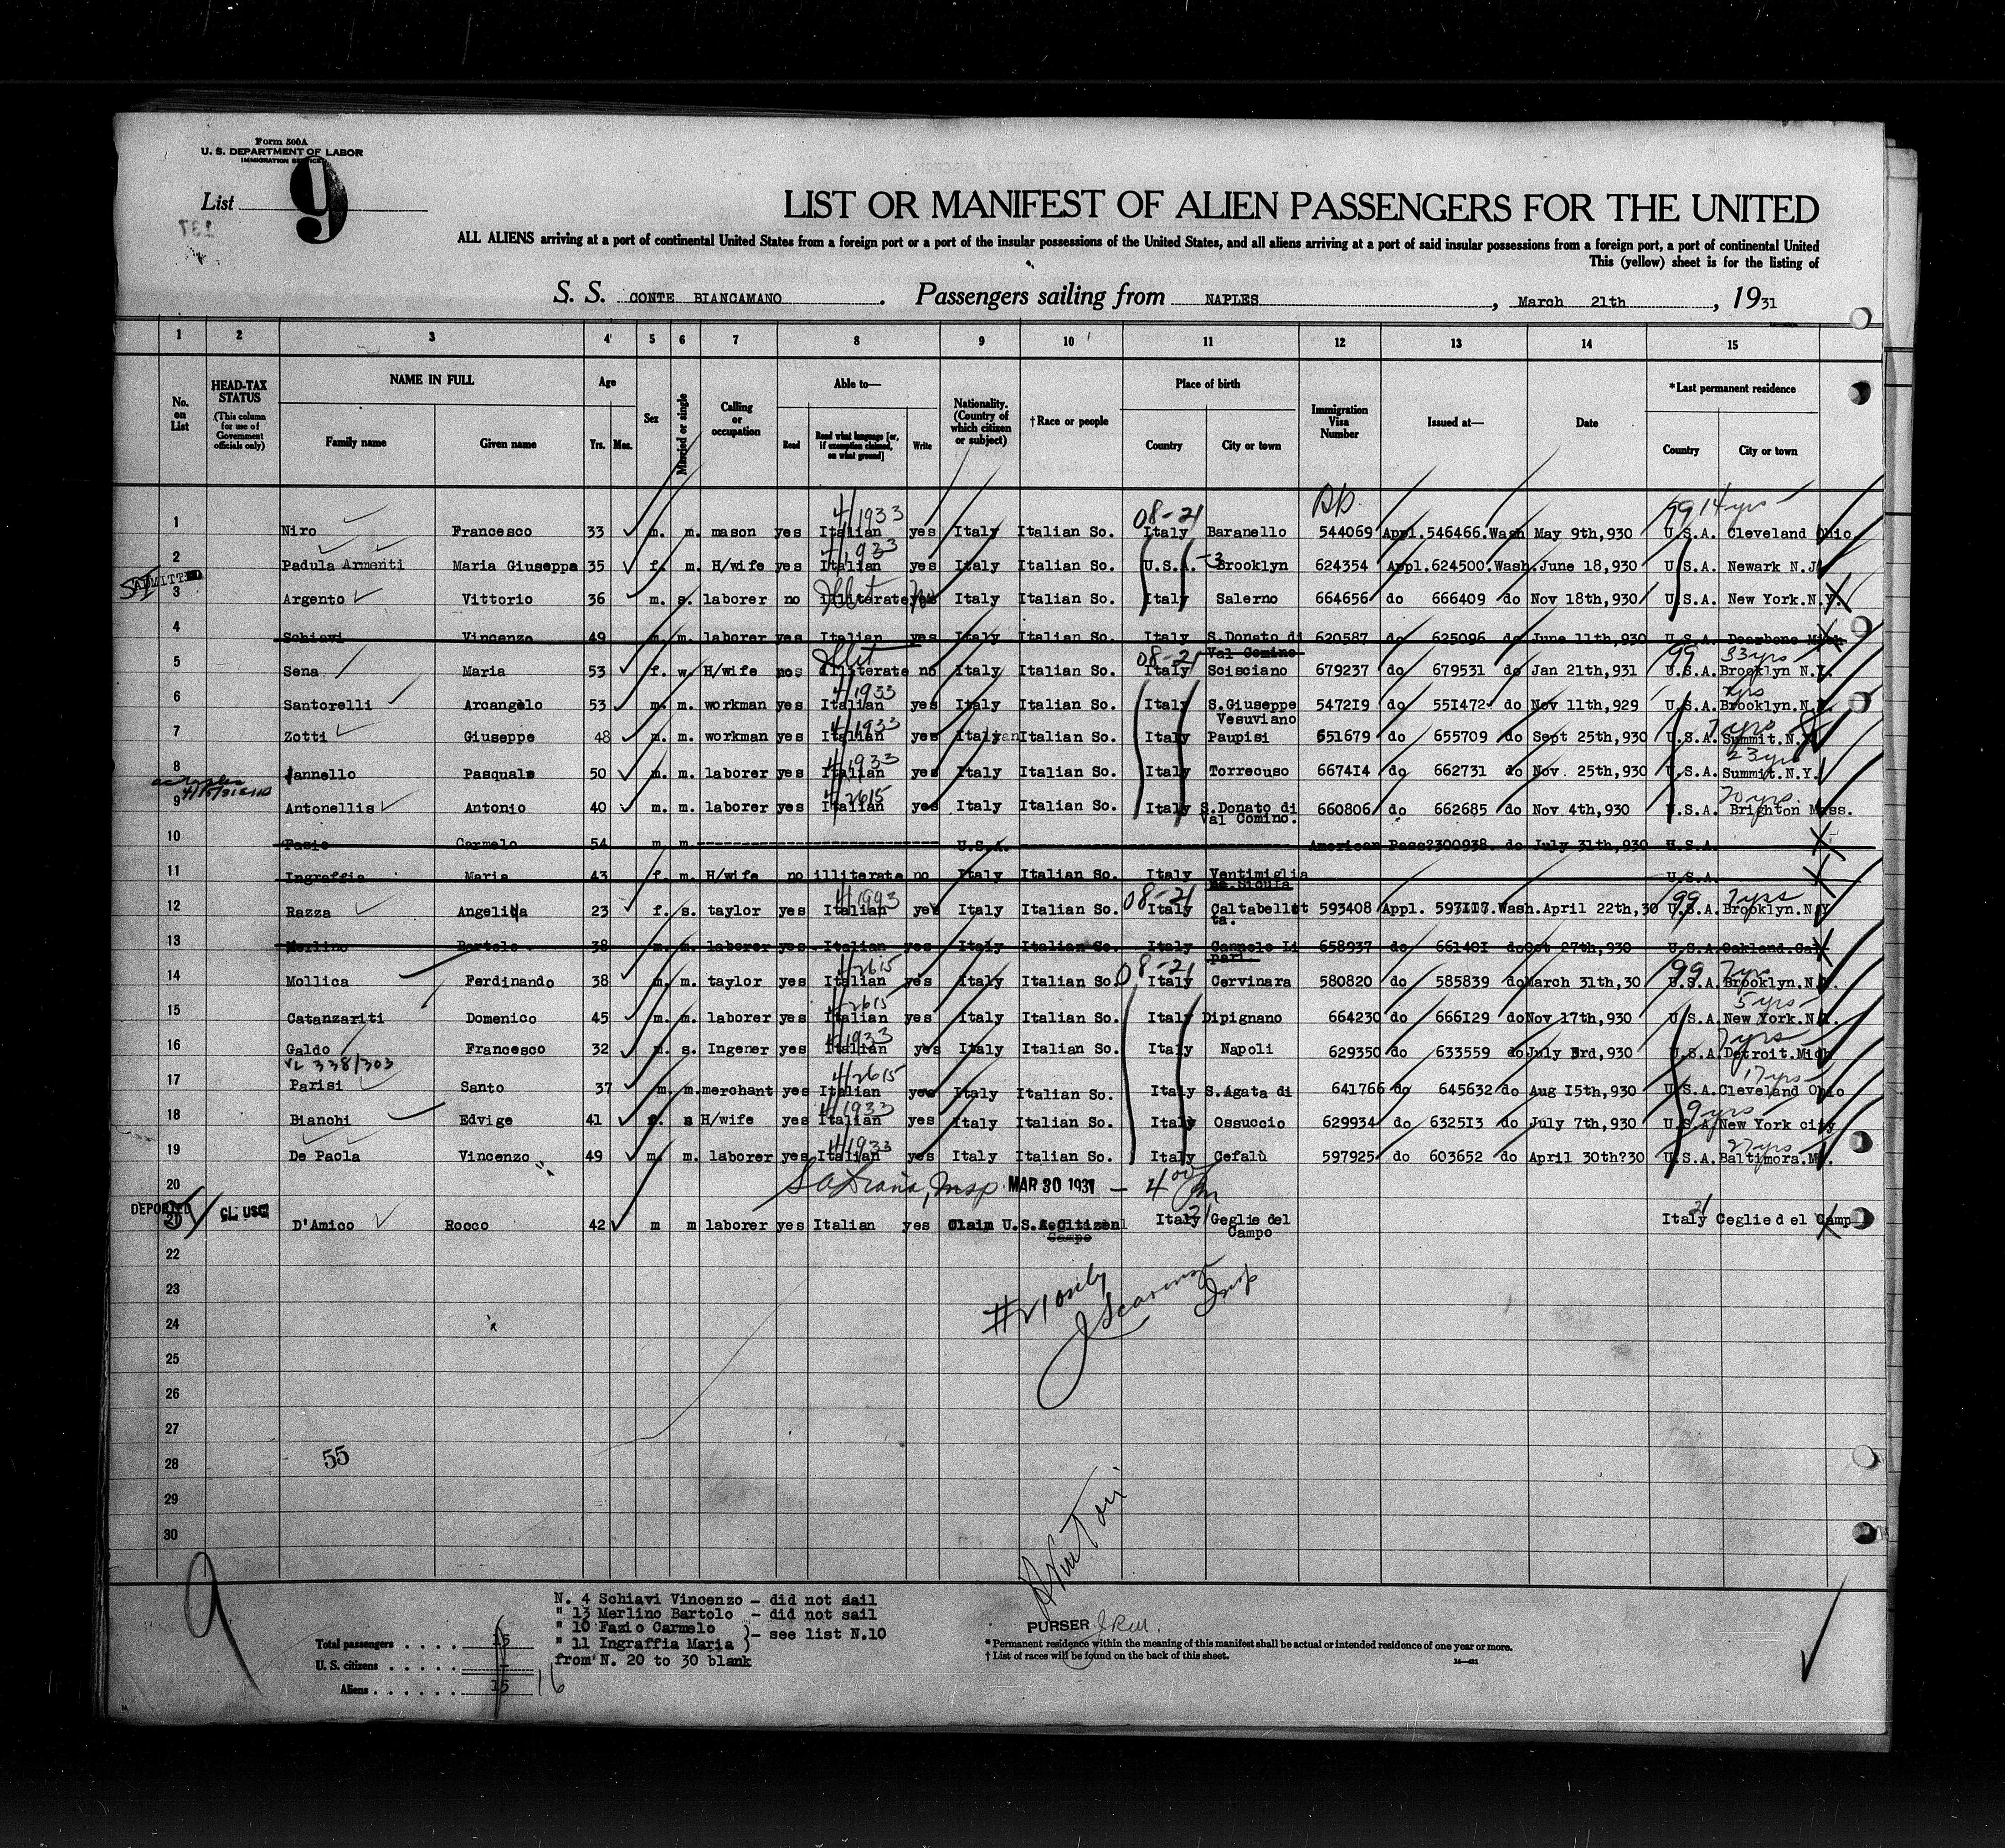 Form 500A
U. S. DEPARTMENT OF LABOR
IMMIGRATION SERVICE
List 9
LIST OR MANIFEST OF ALIEN PASSENGERS FOR THE UNITED
ALL ALIENS arriving at a port of continental United States from a foreign port or a port of the insular possessions of the United States, and all aliens arriving at a port of said insular possessions from a foreign port, a port of continental United
This (yellow) sheet is for the listing of
S. S. CONTE BIANCAMANO. Passengers sailing from NAPLES, March 21th, 1931
1 2 3 4 5 6 7 8 9 10 11 12 13 14 15
No. on List HEAD-TAX STATUS (This column for use of Government officials only) NAME IN FULL Family name Given name Age Yrs. Mos. Sex Married or single Calling or occupation Able to— Read Read what language [or, if exemption claimed, on what ground] Write Nationality. (Country of which citizen or subject) †Race or people Place of birth Country City or town Immigration Visa Number Issued at— Date *Last permanent residence Country City or town
08-21 99 14 yrs
1 Niro Francesco 33 m. m. mason yes Italian yes Italy Italian So. Italy Baranello 544069 Appl.546466.Wash May 9th,930 U.S.A. Cleveland Ohio
2 Padula Armenti Maria Giuseppa 35 f. m. H/wife yes Italian yes Italy Italian So. U.S.A. Brooklyn 624354 Appl.624500.Wash.June 18,930 U.S.A. Newark N.J
ADMITTED
3 Argento Vittorio 36 m. s. laborer no illiterate Italy Italian So. Italy Salerno 664656 do 666409 do Nov 18th,930 U.S.A. New York.N.Y.
4 Schiavi Vincenzo 49 m. m. laborer yes Italian yes Italy Italian So. Italy S.Donato di Val Comino 620587 do 625096 do June 11th,930 U.S.A. Dearbone Mich
08-21 99 33 yrs
5 Sena Maria 53 f. w. H/wife illiterate no Italy Italian So. Italy Scisciano 679237 do 679531 do Jan 21th,931 U.S.A. Brooklyn N.Y.
6 Santorelli Arcangelo 53 m. m. workman yes Italian yes Italy Italian So. Italy S.Giuseppe Vesuviano 547219 do 551472 do Nov 11th,929 U.S.A. Brooklyn.N.Y.
7 Zotti Giuseppe 48 m. m. workman yes Italian yes Italy Italian So. Italy Paupisi 651679 do 655709 do Sept 25th,930 U.S.A. Summit.N.Y.
23 yrs
8 Iannello Pasquale 50 m. m. laborer yes Italian yes Italy Italian So. Italy Torrecuso 667414 do 662731 do Nov. 25th,930 U.S.A. Summit.N.Y.
9 Antonellis Antonio 40 m. m. laborer yes Italian yes Italy Italian So. Italy S.Donato di Val Comino. 660806 do 662685 do Nov 4th,930 U.S.A. Brighton Mass.
10 Fazio Carmelo 54 m m U.S.A. American Pass?300938. do July 31th,930 U.S.A.
11 Ingraffia Maria 43 f. m. H/wife no illiterate no Italy Italian So. Italy Ventimiglia U.S.A.
08-21 99 7 yrs
12 Razza Angelina 23 f. s. taylor yes Italian yes Italy Italian So. Italy Caltabellot ta. 593408 Appl. Wash.April 22th,30 U.S.A. Brooklyn.N.Y
13 Merlino Bartolo 38 m. m. laborer yes Italian yes Italy Italian So. Italy Cannele Li pari. 658937 do 661401 do Oct 27th,930 U.S.A.Oakland.Cal
08-21 99 7 yrs
14 Mollica Ferdinando 38 m. m. taylor yes Italian yes Italy Italian So. Italy Cervinara 580820 do 585839 do March 31th,30 U.S.A.Brooklyn.N.Y.
5 yrs
15 Catanzariti Domenico 45 m. m. laborer yes Italian yes Italy Italian So. Italy Dipignano 664230 do 666129 do Nov 17th,930 U.S.A.New York.N.Y.
7 yrs
16 Galdo Francesco 32 m. s. Ingener yes Italian yes Italy Italian So. Italy Napoli 629350 do 633559 do July 3rd,930 U.S.A.Detroit.Mich
338/303 17 yrs
17 Parisi Santo 37 m. m. merchant yes Italian yes Italy Italian So. Italy S.Agata di 641766 do 645632 do Aug 15th,930 U.S.A.Cleveland Ohio
9 yrs
18 Bianchi Edvige 41 f. s H/wife yes Italian yes Italy Italian So. Italy Ossuccio 629934 do 632513 do July 7th,930 U.S.A.New York city
27 yrs
19 De Paola Vincenzo 49 m. m. laborer yes Italian yes Italy Italian So. Italy Cefalù 597925 do 603652 do April 30th?30 U.S.A.Baltimora.Md.
20 Insp. MAR 30 1931 — 4 00
DEPORTED
21 D'Amico Rocco 42 m m laborer yes Italian yes Claim U.S.A.Citizen Italy Ceglie del Campo Italy Ceglie d el Camp
22
23 #21 only Insp
24
25
26
27
28 55
29
30
N. 4 Schiavi Vincenzo - did not sail
" 13 Merlino Bartolo - did not sail
" 10 Fazio Carmelo
" 11 Ingraffia Maria )- see list N.10
from N. 20 to 30 blank
Total passengers . . . . 15
U. S. citizens . . . . . -
Aliens . . . . . . 15 16
PURSER
* Permanent residence within the meaning of this manifest shall be actual or intended residence of one year or more.
† List of races will be found on the back of this sheet.